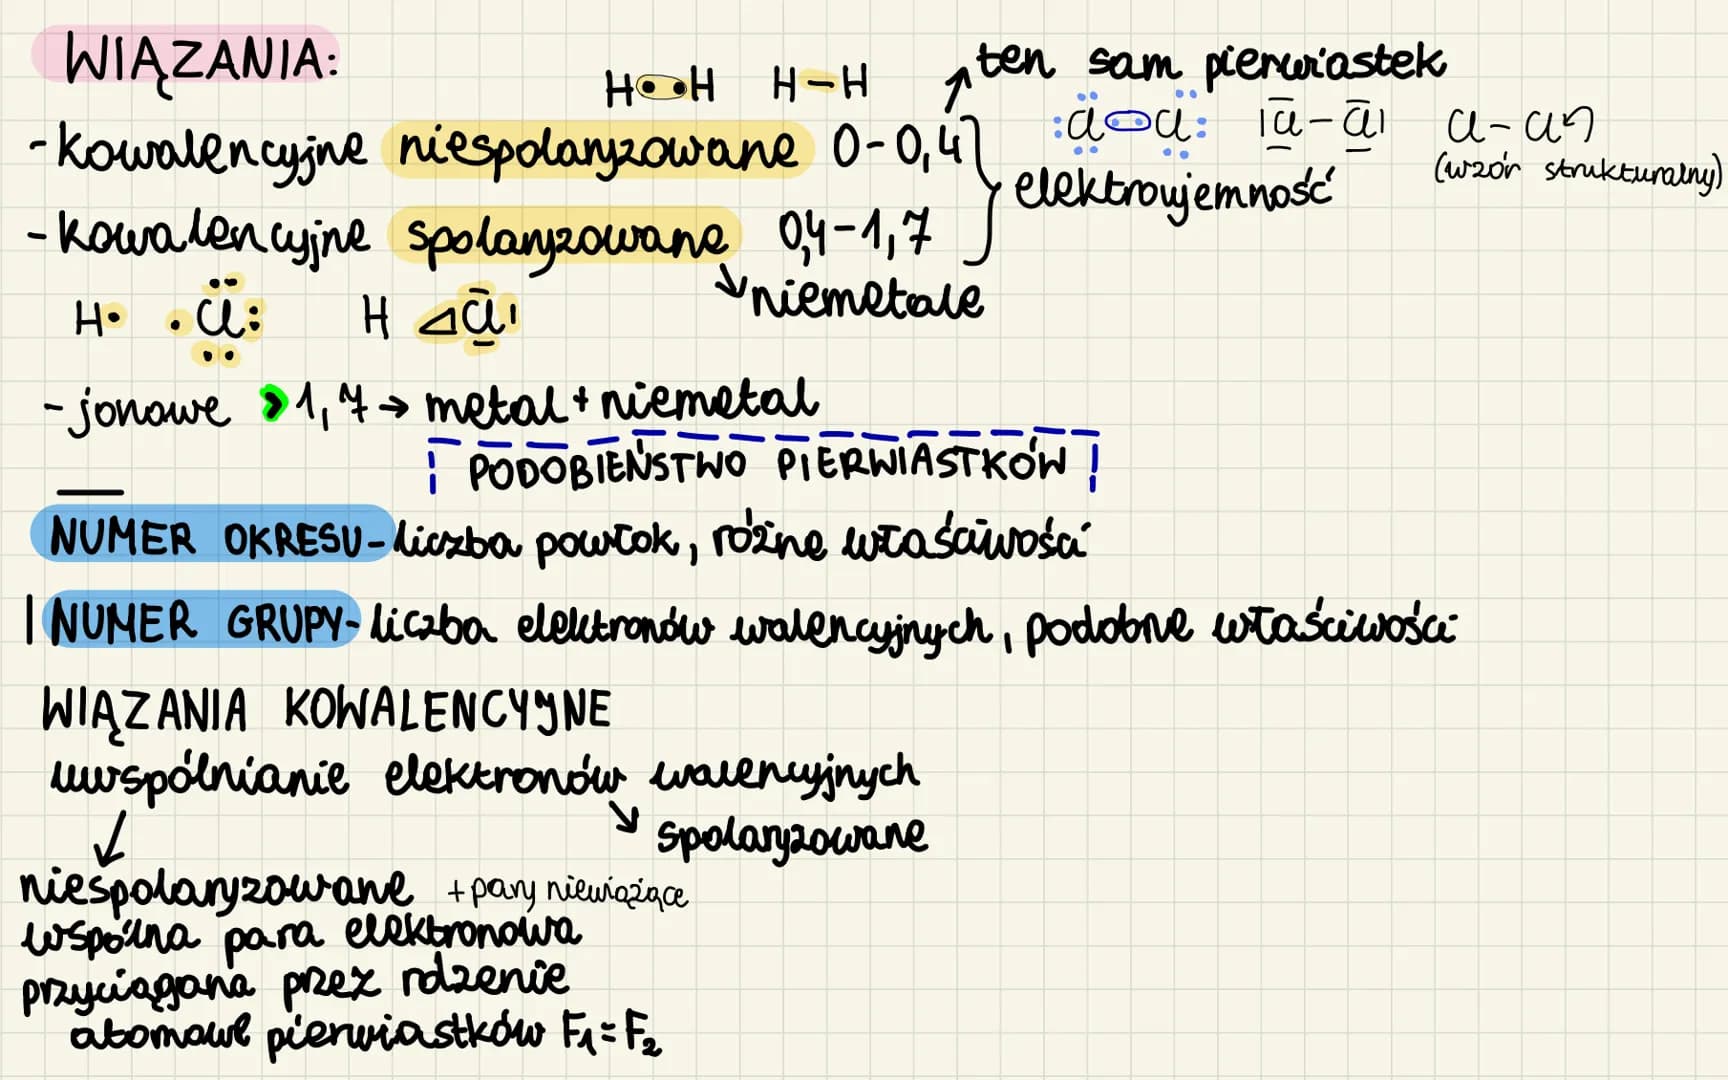 WIĄZANIA:
H••H H–H ten sam pierwiastek
:Cl··Cl: |Cl–Cl| Cl–Cl
(wzór strukturalny)
-kowalencyjne niespolaryzowane 0-0,4
elektroujemność
-kowalencyjne spolaryzowane 0,4-1,7
niemetale
H• •Cl: H Cl|
-jonowe >1,7→ metal+niemetal
PODOBIEŃSTWO PIERWIASTKÓW
NUMER OKRESU-liczba powłok, różne właściwości
NUMER GRUPY-liczba elektronów walencyjnych, podobne właściwości
WIĄZANIA KOWALENCYJNE
uwspólnianie elektronów walencyjnych
spolaryzowane
niespolaryzowane +pary niewiążące
wspólna para elektronowa
przyciągana przez rdzenie
atomowe pierwiastków F₁=F₂